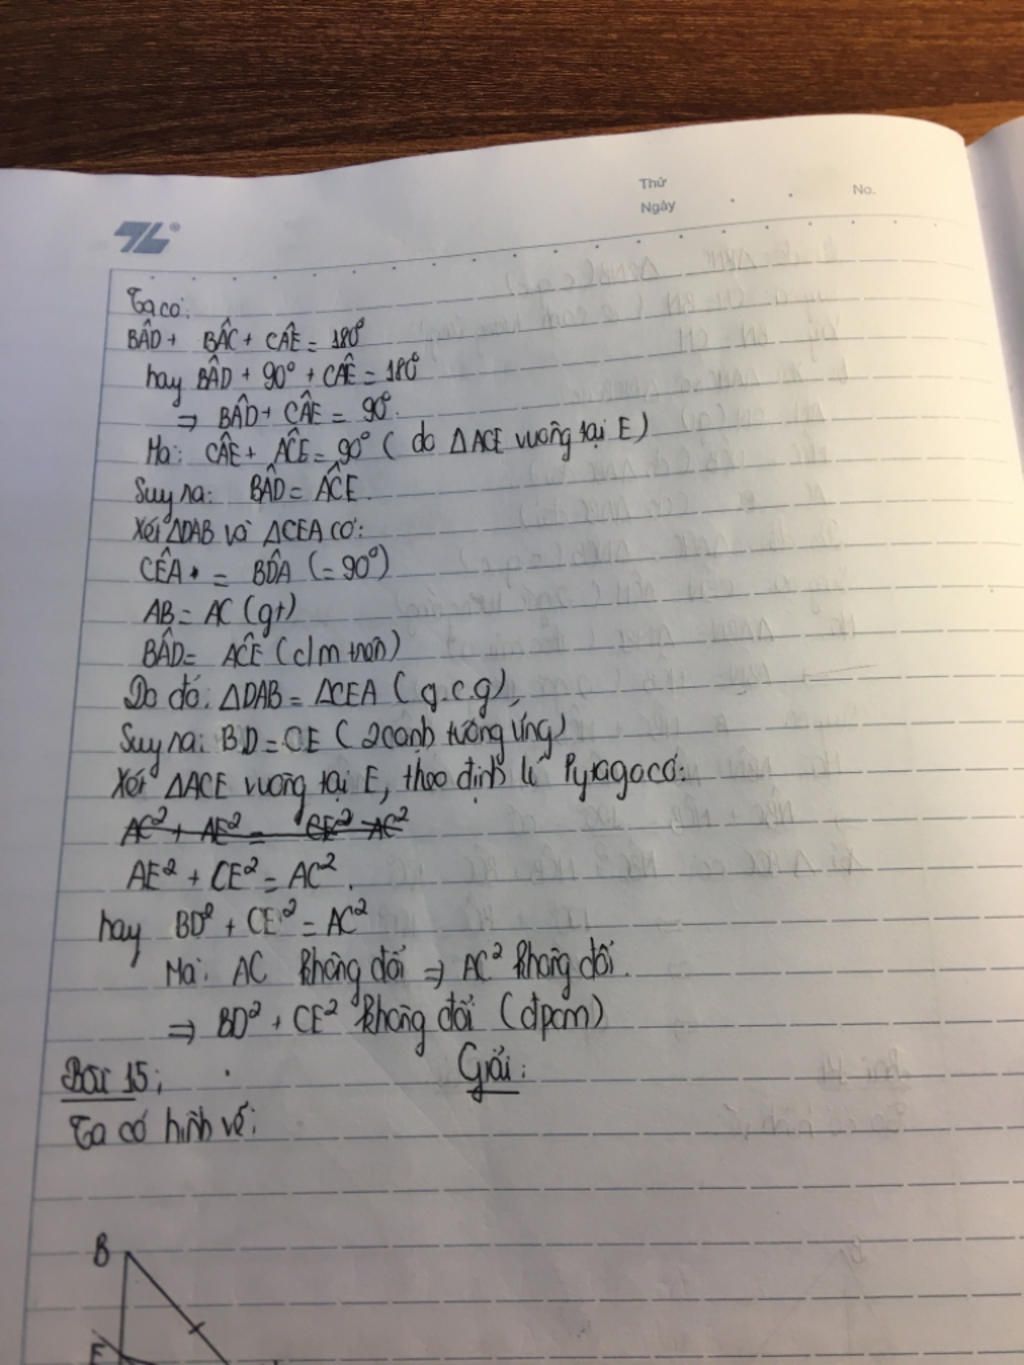 Thứ
Ngày
No.
TL®
Ta có:
BÂD + BÂC + CÂE = 180°
hay BÂD + 90° + CÂE = 180°
⇒ BÂD + CÂE = 90°.
Mà: CÂE + AĈE = 90° ( do ΔACE vuông tại E )
Suy ra: BÂD = AĈE.
Xét ΔDAB và ΔCEA có:
CÊA = BD̂A (= 90°)
AB = AC (gt)
BÂD = AĈE (c/m trên)
Do đó: ΔDAB = ΔCEA ( g.c.g ),
Suy ra: BD = CE ( 2 cạnh tương ứng)
Xét ΔACE vuông tại E, theo định lí Pytago có:
AC² + AE² = CE² AC²
AE² + CE² = AC².
hay BD² + CE² = AC²
Mà: AC không đổi ⇒ AC² không đổi.
⇒ BD² + CE² không đổi (đpcm)
Bài 15: Giải:
Ta có hình vẽ:
B
E